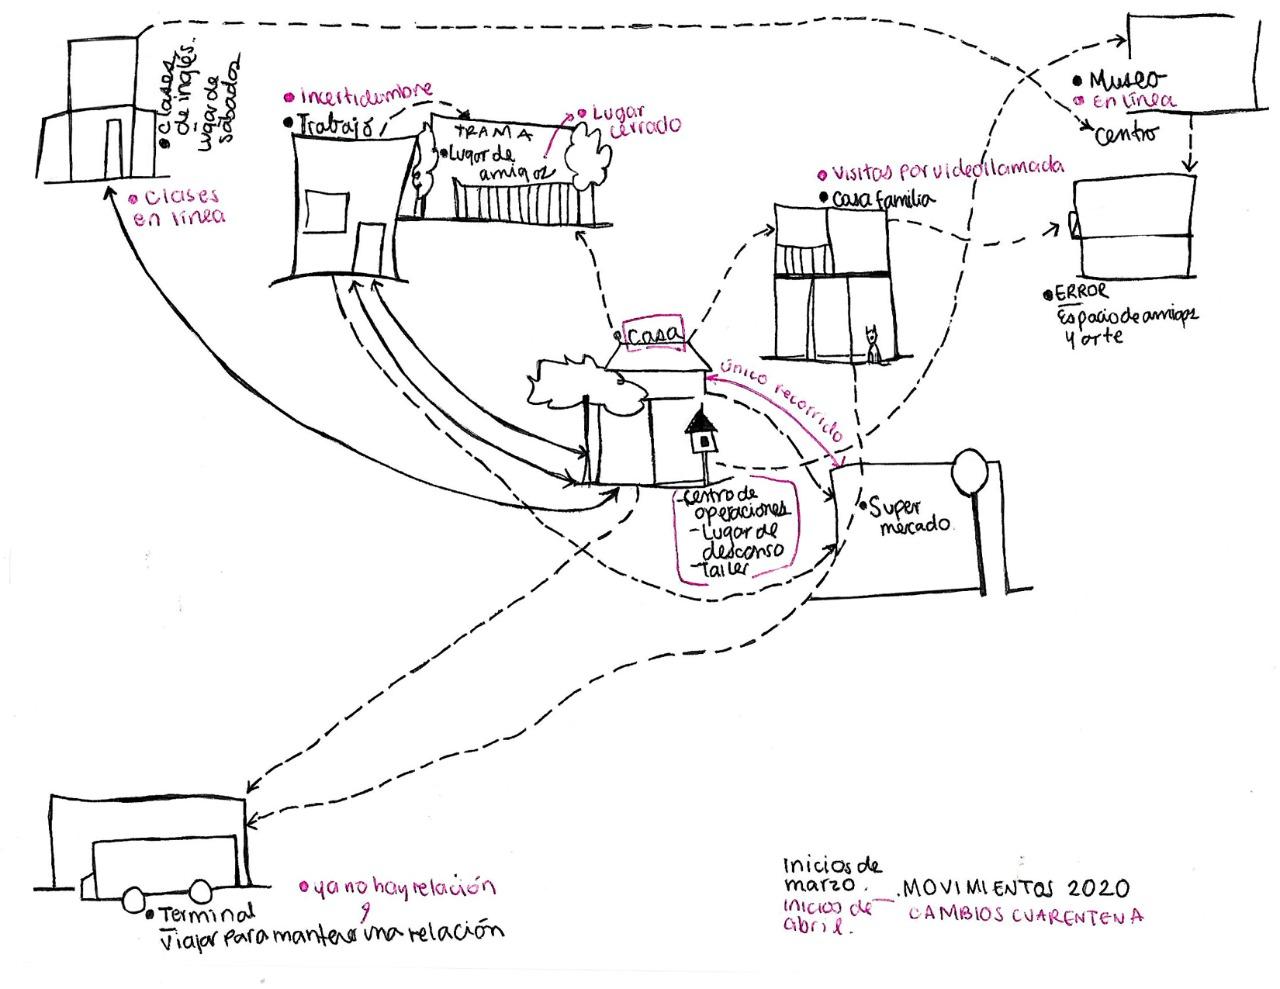 • Clases
de inglés.
lugar de
sábados
• Clases
en línea
• incertidumbre
• Trabajo
TRAMA
• Lugar de
amigos
• Lugar
cerrado
• Museo
• En línea
centro
• Visitas por videollamada
• Casa familia
• ERROR
Espacio de amigos
y arte
• Casa
único recorrido
- Centro de
operaciones
- Lugar de
descanso
- Taller
• Super
mercado.
• ya no hay relación
• Terminal
Viajar para mantener una relación
Inicios de
marzo.
MOVIMIENTOS 2020
inicios de
abril.
CAMBIOS CUARENTENA